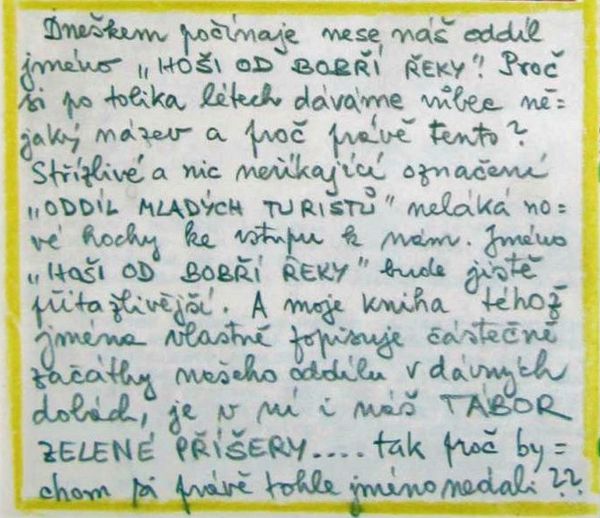 Dneškem počínaje nese náš oddíl
jméno „HOŠI OD BOBŘÍ ŘEKY". Proč
si po tolika létech dáváme vůbec ně=
jaký název a proč právě tento?
Střízlivé a nic neříkající označení
„ODDÍL MLADÝCH TURISTŮ" neláká no=
vé hochy ke vstupu k nám. Jméno
„HOŠI OD BOBŘÍ ŘEKY" bude jistě
přitažlivější. A moje kniha téhož
jména vlastně popisuje částečně
začátky našeho oddílu v dávných
dobách, je v ní i náš TÁBOR
ZELENÉ PŘÍŠERY.... tak proč by=
chom si právě tohle jméno nedali??